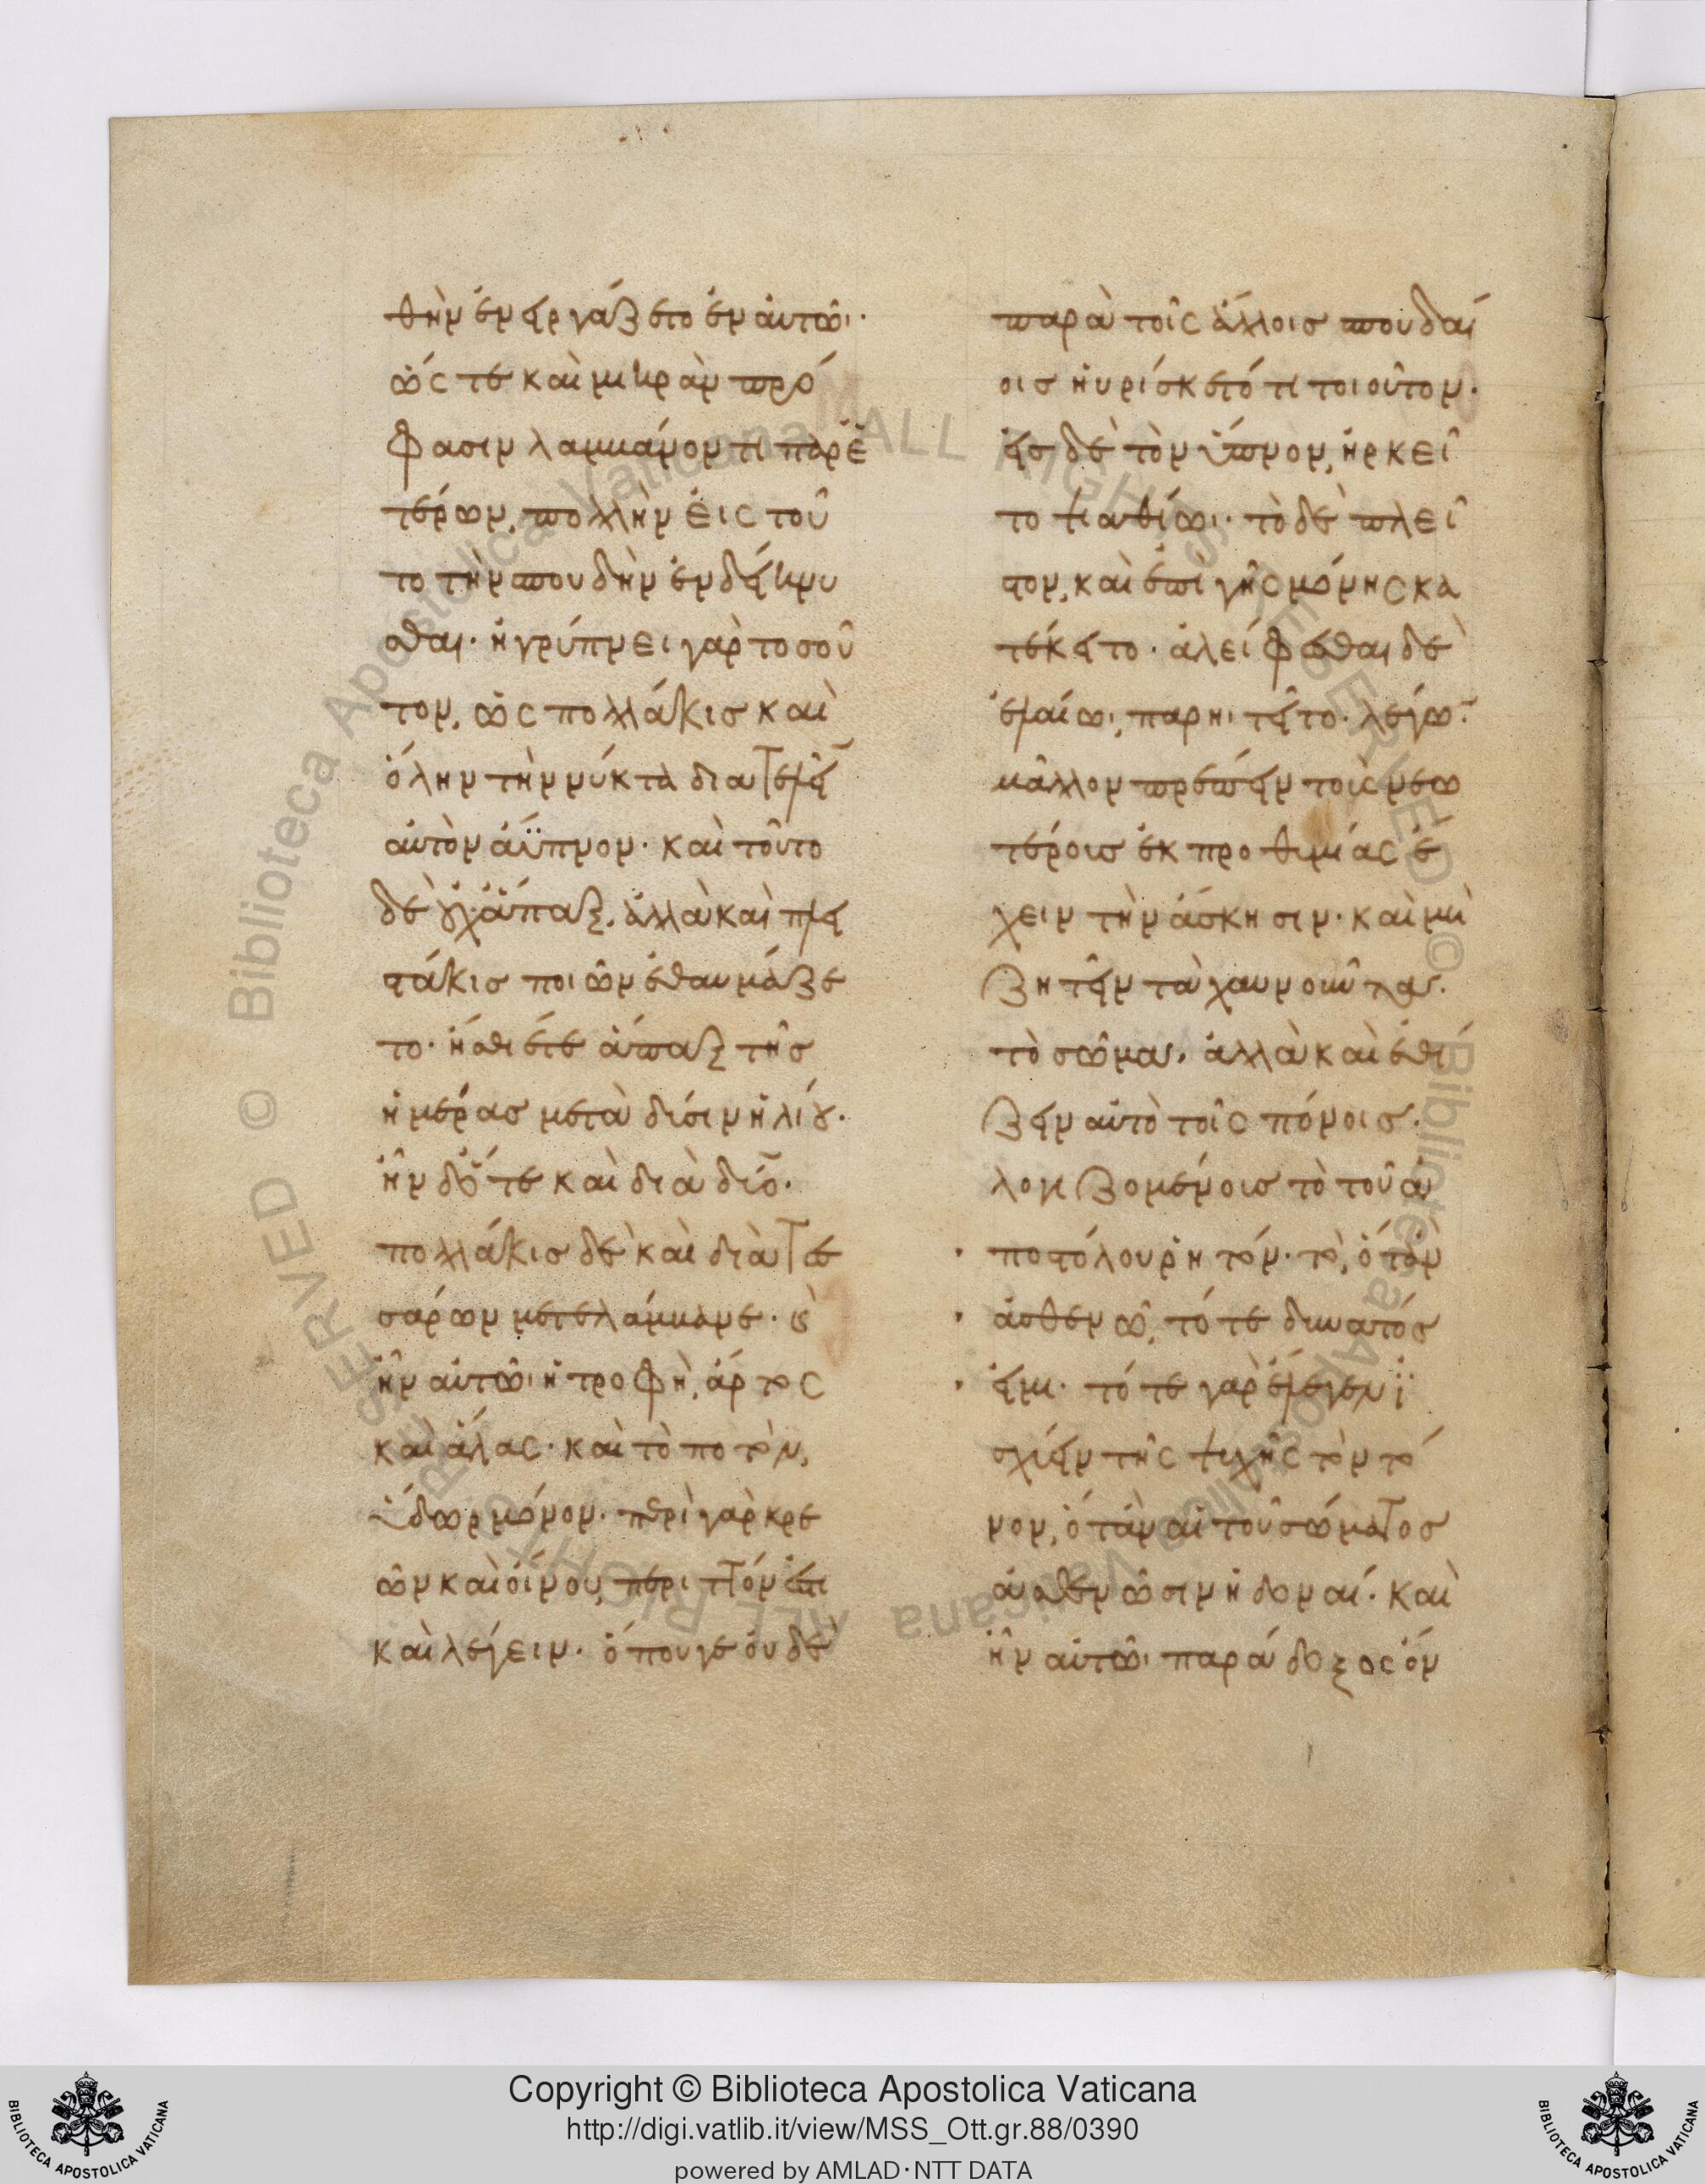 θὴν ἐνειργάζετο ἐν ἀυτῶι·
ὥς τε καὶ μικρὰν πρό
φασιν λαμβάνοντι παρ ἑ
τέρων, πολλὴν ἐις τοῦ
το τὴν σπουδὴν ἐνδείκνυ
σθαι· ἠγρύπνει γὰρ τοσοῦ
τον, ὡς πολλάκις καὶ
ὅλην τὴν νύκτα διατελεῖ
αὐτὸν ἀΰπνον· καὶ τοῦτο
δὲ οὐχ ἅπαξ, ἀλλὰ καὶ πλει
στάκις ποιῶν ἐθαυμάζε
το· ἤσθιέ τε ἅπαξ τῆς
ἡμέρας μετὰ δύσιν ἡλίου·
ἦν δ' ὅτε καὶ διὰ δύο·
πολλάκις δὲ καὶ διὰ τεσ
σάρων μετελάμβανε· καὶ
ἦν αὐτῶι ἡ τροφὴ, ἄρτος
καὶ ἅλας· καὶ τὸ ποτὸν,
ὕδωρ μόνον· περὶ γὰρ κρε
ῶν καὶ οἴνου, περιττόν ἐστι
καὶ λέγειν· ὅπου γε οὐδὲ
παρὰ τοῖς ἄλλοις σπουδαί
οις ηὑρίσκετό τι τοιοῦτον·
εἰς δὲ τὸν ὕπνον, ἠρκεῖ
το ψιαθίωι· τὸ δὲ πλεῖ
στον, καὶ ἐπὶ γῆς μόνης κα
τέκειτο· ἀλείφεσθαι δὲ
ἐλαίωι, παρηιτεῖτο· λέγων
μᾶλλον πρέπειν τοῖς νεω
τέροις ἐκ προθυμίας ἔ
χειν τὴν ἄσκησιν· καὶ μὴ
ζητεῖν τὰ χαυνοῦντα
τὸ σῶμα, ἀλλὰ καὶ ἐθί
ζειν αὐτὸ τοῖς πόνοις·
λογιζομένοις τὸ τοῦ ἀ
ποστόλου ῥητόν· τὸ, ὅταν
ἀσθενῶ, τότε δυνατός
εἰμι· τότε γὰρ ἔλεγεν ἰ
σχύειν τῆς ψυχῆς τὸν τό
νον, ὅταν αἱ τοῦ σώματος
ἀσθενῶσιν ἡδοναί· καὶ
ἦν αὐτῶι παράδοξος ὄν
Copyright © Biblioteca Apostolica Vaticana
http://digi.vatlib.it/view/MSS_Ott.gr.88/0390
powered by AMLAD·NTT DATA